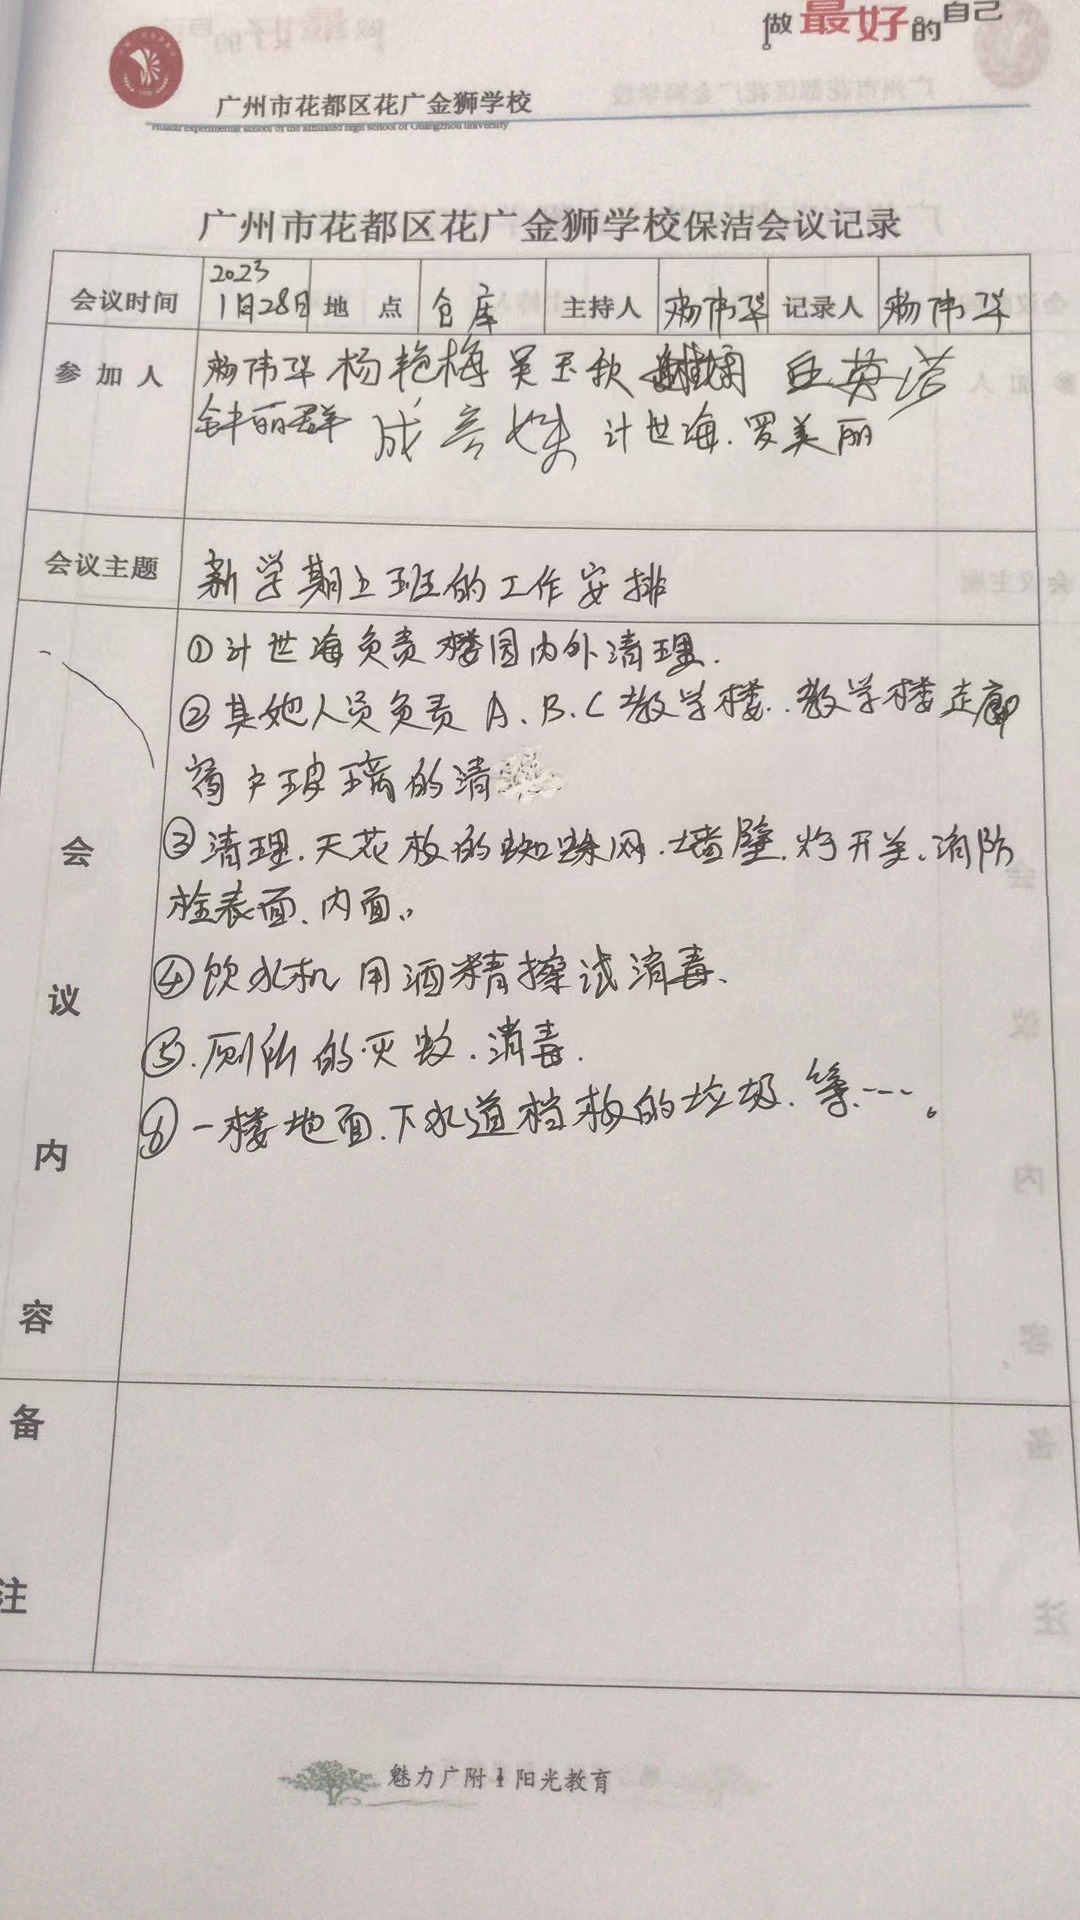 做最好的自己
广州市花都区花广金狮学校
Huadu experimental school of the affiliated high school of Guangzhou university
广州市花都区花广金狮学校保洁会议记录
会议时间 2023 1月28日 地 点 仓库 主持人 杨伟华 记录人 杨伟华
参加人 杨伟华 杨艳梅 吴玉秋 丘英
钟丽群 成 计世海、罗美丽
会议主题 新学期上班的工作安排
会议内容
①计世海负责楼园内外清理.
②其她人员负责A、B、C教学楼、教学楼走廊
窗户玻璃的清
③清理、天花板的蜘蛛网、墙壁、灯开关、消防
栓表面、内面。
④饮水机用酒精擦试消毒、
⑤、厕所的灭蚊、消毒.
⑥一楼地面、下水道档板的垃圾、等…。
备注
魅力广附 阳光教育